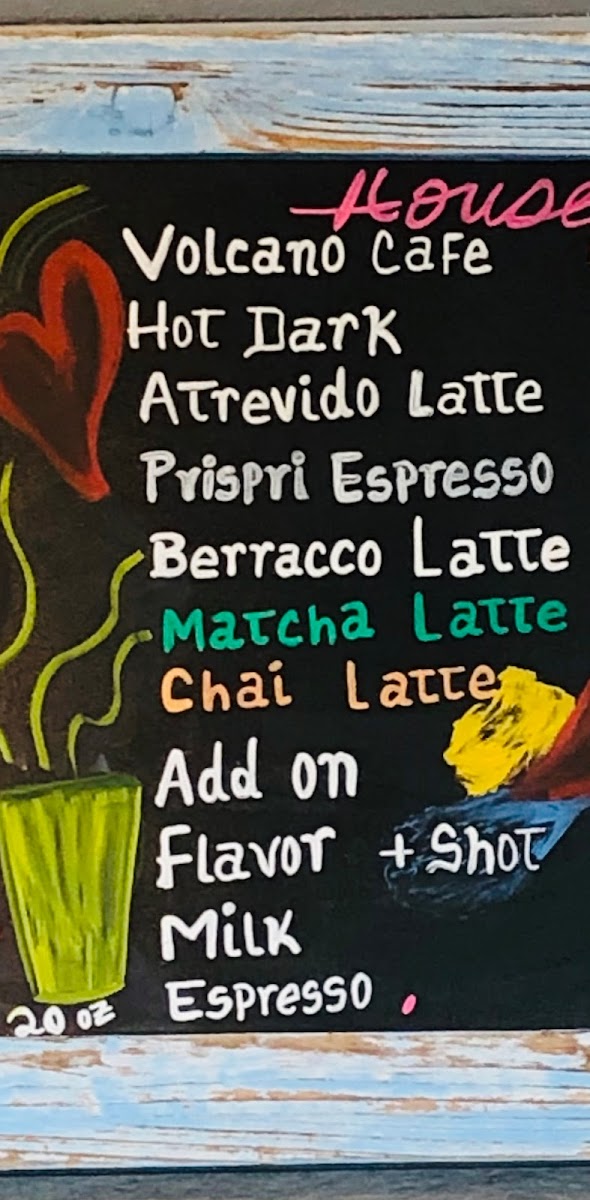 House
Volcano Cafe
Hot Dark
Atrevido Latte
Prispri Espresso
Berracco Latte
Matcha Latte
Chai Latte
Add on
Flavor + Shot
Milk
Espresso
20 oz